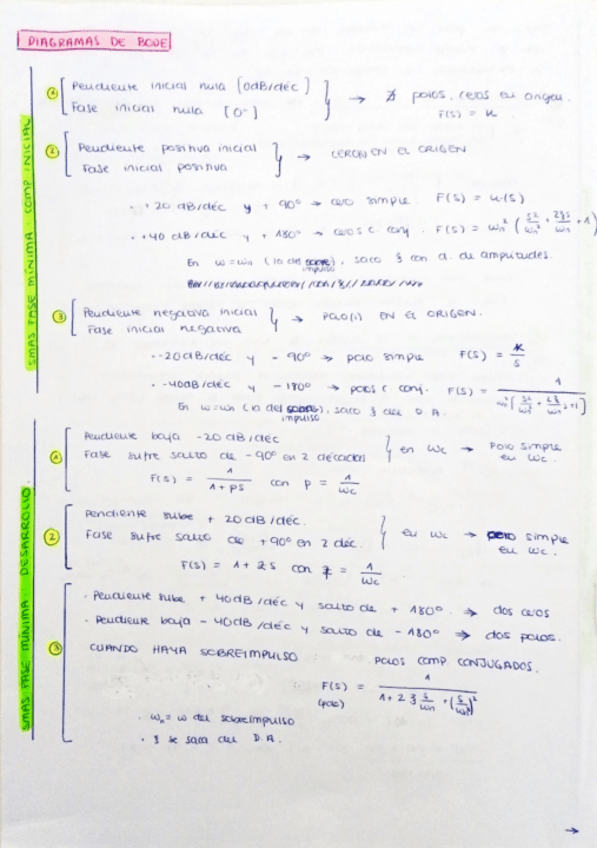 DIAGRAMAS DE BODE
SMAS FASE MÍNIMA: COMP INICIAL
① Pendiente inicial nula [0dB/déc]
Fase inicial nula [0°] → ∄ polos, ceros en origen.
F(s) = K
② Pendiente positiva inicial
Fase inicial positiva → CERO(I) EN EL ORIGEN
· +20 dB/déc y + 90° → cero simple. F(s) = K·(s)
· +40 dB/déc y + 180° → ceros c. conj. F(s) = ωn² (s²/ωn² + 2ξs/ωn + 1)
En ω=ωn (la del impulso), saco ξ con d. de amplitudes.
③ Pendiente negativa inicial
Fase inicial negativa → POLO(I) EN EL ORIGEN.
· -20dB/déc y - 90° → polo simple F(s) = K/s
· -40dB/déc y - 180° → polos c conj. F(s) = 1/
En ω=ωn (la del impulso), saco ξ del D.A.
SMAS FASE MÍNIMA: DESARROLLO
① Pendiente baja -20 dB/déc
Fase sufre salto de -90° en 2 décadas } en ωc → Polo simple en ωc.
F(s) = 1/(1+ps) con p = 1/ωc
② Pendiente sube + 20dB/déc.
Fase sufre salto de +90° en 2 déc. } en ωc → simple en ωc.
F(s) = 1+zs con z = 1/ωc
③ · Pendiente sube + 40dB/déc y salto de + 180°. ⇒ dos ceros
· Pendiente baja - 40dB/déc y salto de - 180° ⇒ dos polos.
CUANDO HAYA SOBREIMPULSO POLOS COMP CONJUGADOS.
F(s) = 1/(1+2ξ s/ωn + (s/ωn)²)
(polo)
· ωn = ω del sobreimpulso
· ξ se saca del D.A.
→